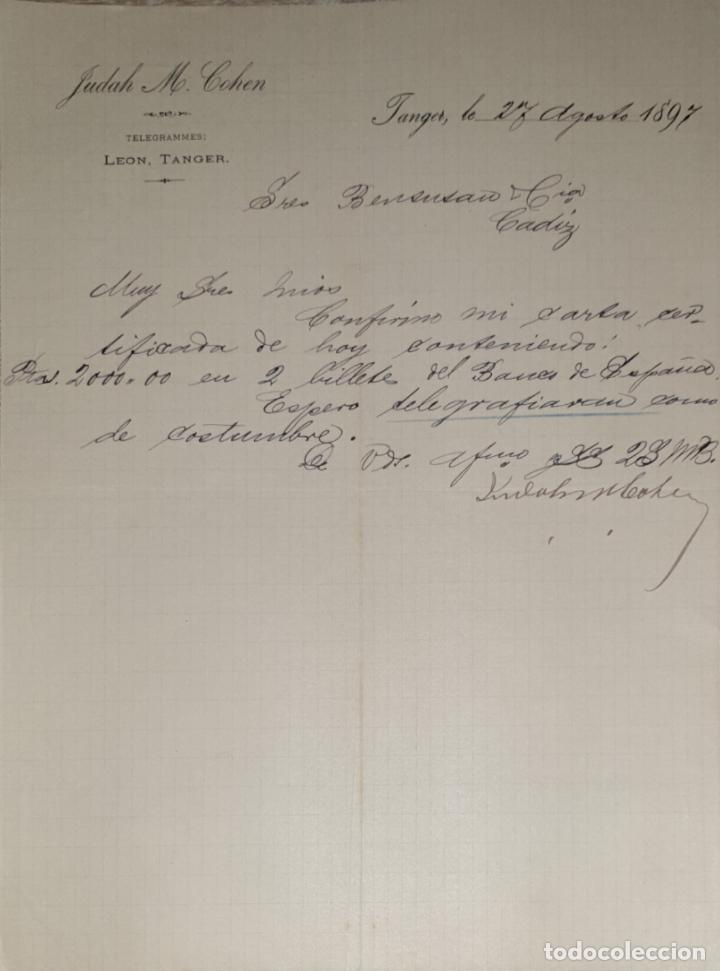 Judah M. Cohen
TELEGRAMMES:
LEON, TANGER.
Tanger, le 27 Agosto 1897
Sres Bensusan & Cia
Cadiz
Muy Sres mios
Confirmo mi carta cer-
tificada de hoy conteniendo:
Ptas. 2000.00 en 2 billetes del Banco de España
Espero telegrafiaran como
de costumbre.
De Vds. afmo SS 2SMB.
Judah M Cohen
todocoleccion